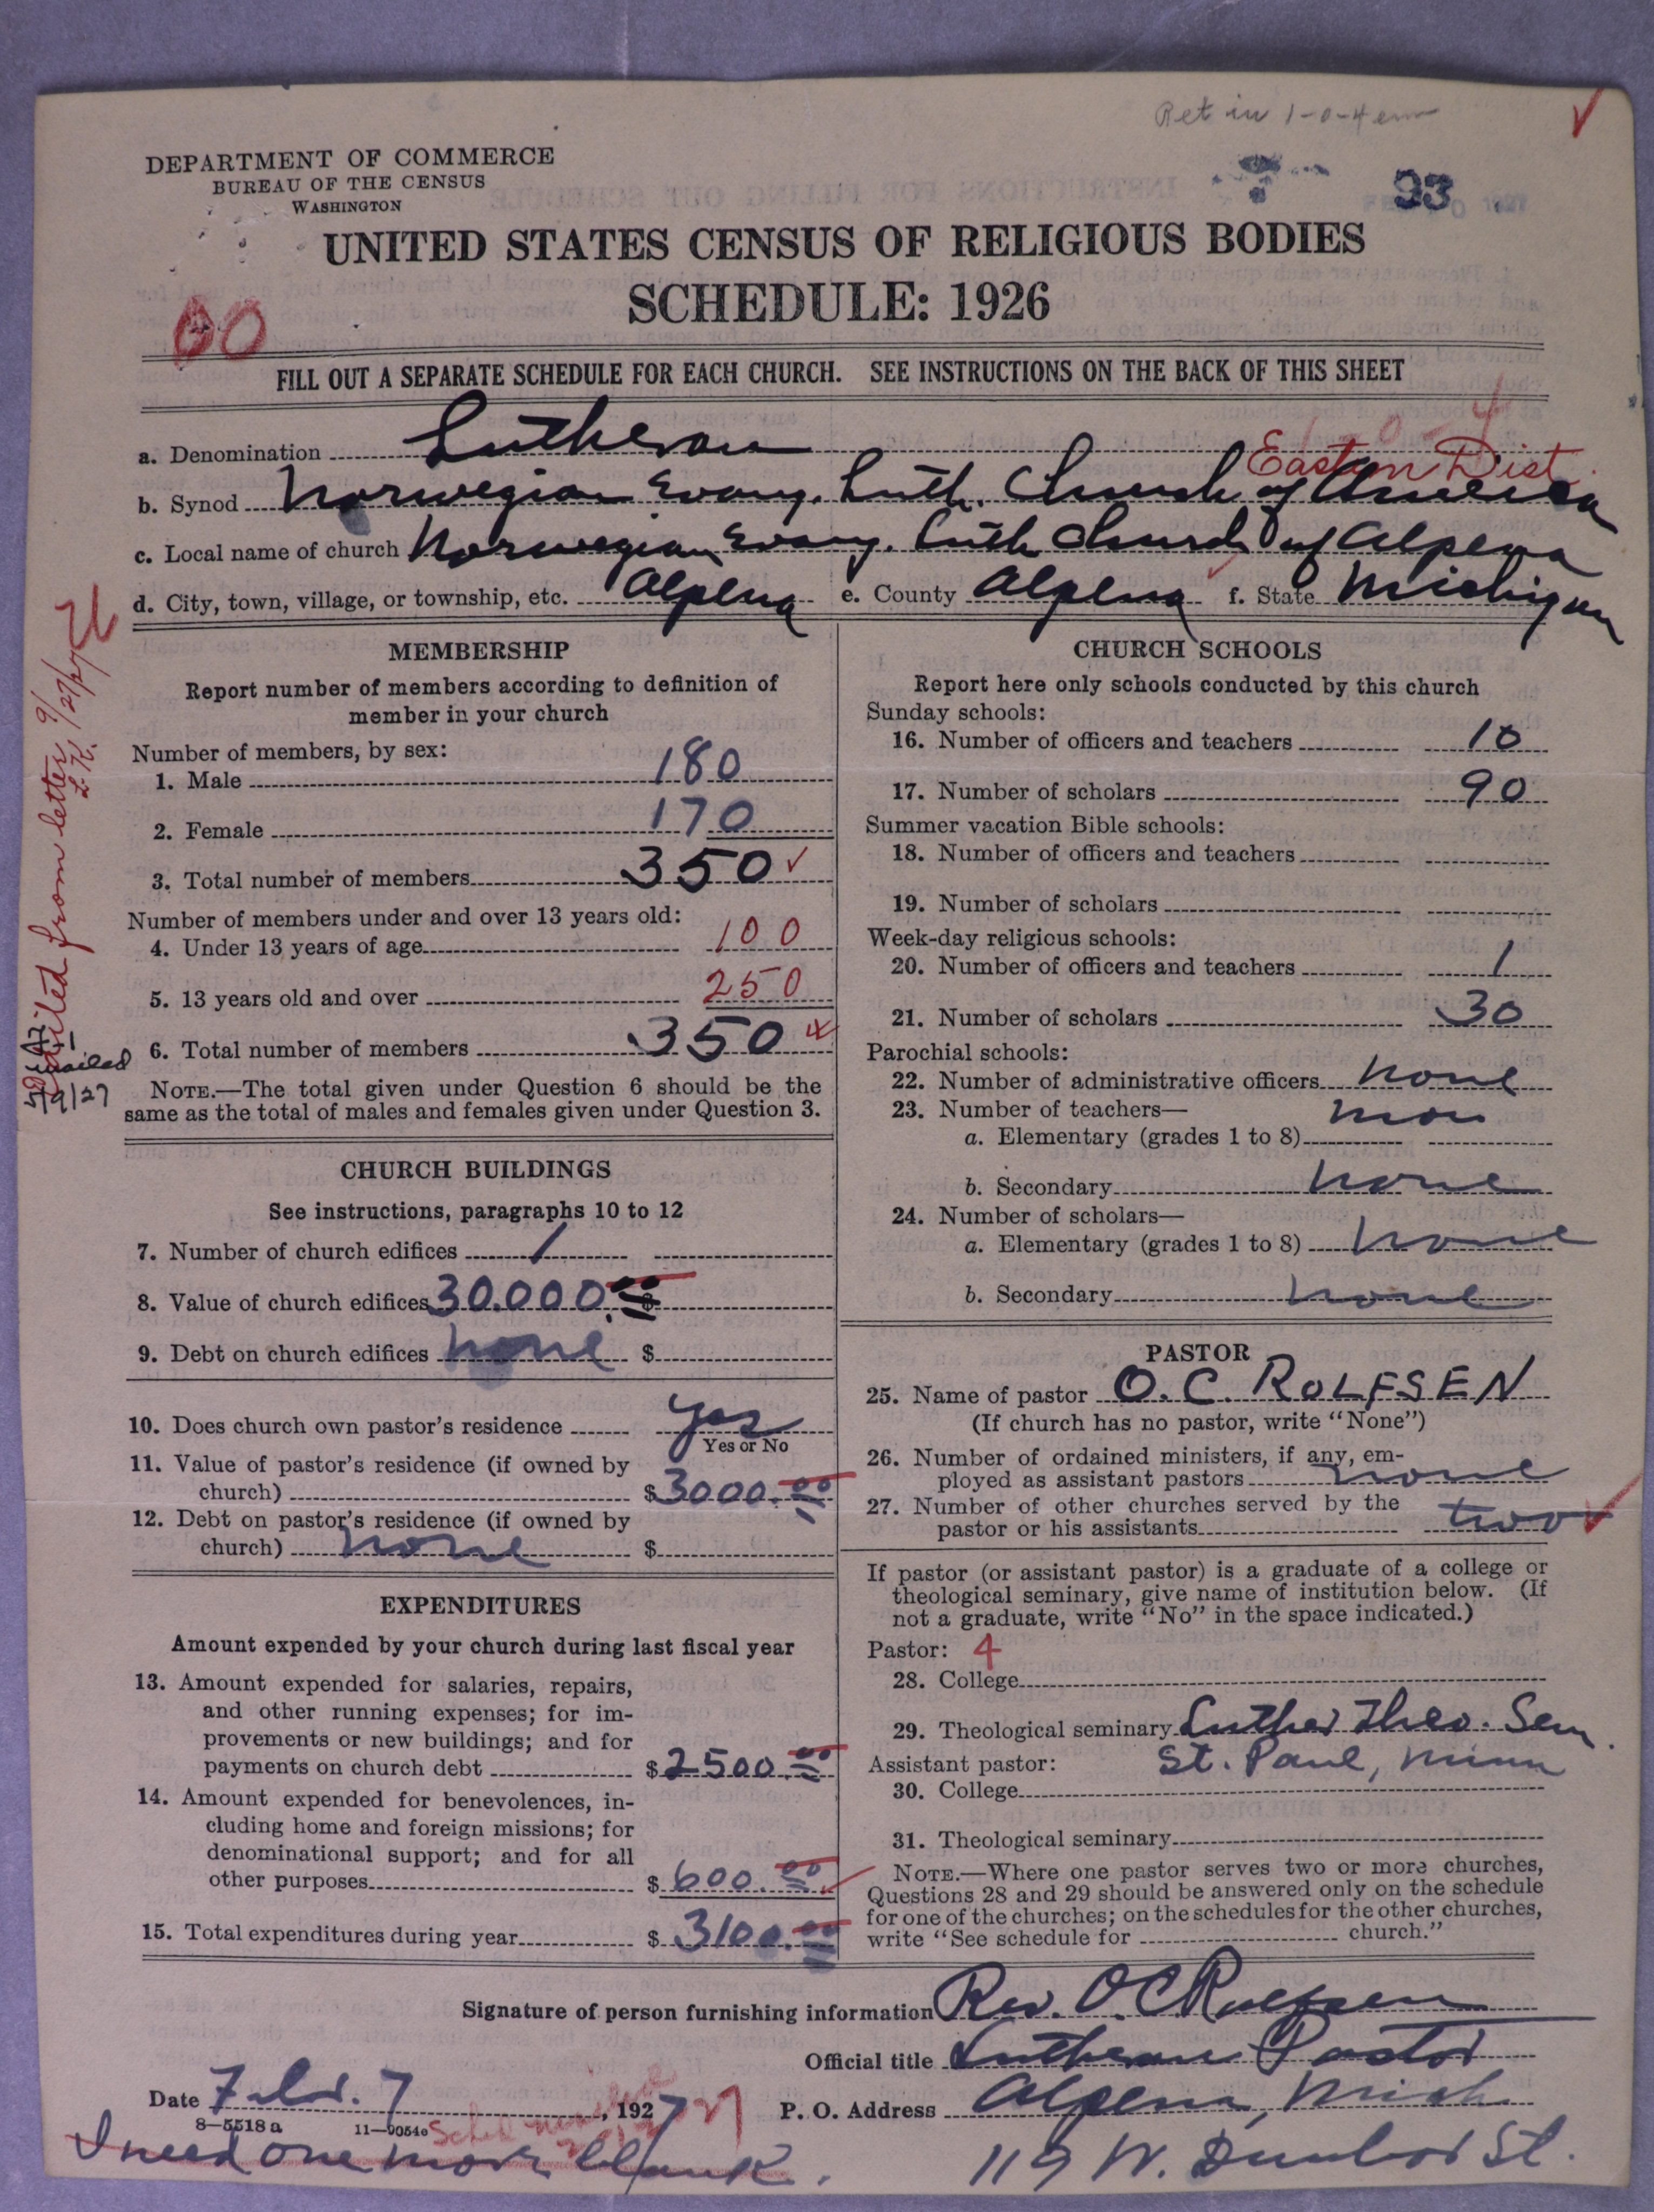 Ret in 1-0-4
DEPARTMENT OF COMMERCE
BUREAU OF THE CENSUS
WASHINGTON
93
UNITED STATES CENSUS OF RELIGIOUS BODIES
SCHEDULE: 1926
00
FILL OUT A SEPARATE SCHEDULE FOR EACH CHURCH. SEE INSTRUCTIONS ON THE BACK OF THIS SHEET
1-0-4
a. Denomination Lutheran
Eastern Dist.
b. Synod Norwegian Evang. Luth. Church of America
c. Local name of church Norwegian Evang. Luth Church of Alpena
d. City, town, village, or township, etc. Alpena e. County Alpena f. State Michigan
MEMBERSHIP
Report number of members according to definition of
member in your church
Number of members, by sex:
1. Male 180
2. Female 170
3. Total number of members 350
Number of members under and over 13 years old:
4. Under 13 years of age 100
5. 13 years old and over 250
6. Total number of members 350
NOTE.—The total given under Question 6 should be the
same as the total of males and females given under Question 3.
Edited from letter 9/27/27
L.K.
mailed
5/9/27
CHURCH BUILDINGS
See instructions, paragraphs 10 to 12
7. Number of church edifices 1
8. Value of church edifices 30.000.00 $
9. Debt on church edifices none $
10. Does church own pastor's residence yes
Yes or No
11. Value of pastor's residence (if owned by
church) $3000.00
12. Debt on pastor's residence (if owned by
church) none $
EXPENDITURES
Amount expended by your church during last fiscal year
13. Amount expended for salaries, repairs,
and other running expenses; for im-
provements or new buildings; and for
payments on church debt $2500.00
14. Amount expended for benevolences, in-
cluding home and foreign missions; for
denominational support; and for all
other purposes $600.00
15. Total expenditures during year $3100.00
CHURCH SCHOOLS
Report here only schools conducted by this church
Sunday schools:
16. Number of officers and teachers 10
17. Number of scholars 90
Summer vacation Bible schools:
18. Number of officers and teachers
19. Number of scholars
Week-day religious schools:
20. Number of officers and teachers 1
21. Number of scholars 30
Parochial schools:
22. Number of administrative officers none
23. Number of teachers—
a. Elementary (grades 1 to 8)
b. Secondary none
24. Number of scholars—
a. Elementary (grades 1 to 8) none
b. Secondary none
PASTOR
25. Name of pastor O. C. ROLFSEN
(If church has no pastor, write "None")
26. Number of ordained ministers, if any, em-
ployed as assistant pastors none
27. Number of other churches served by the
pastor or his assistants two
If pastor (or assistant pastor) is a graduate of a college or
theological seminary, give name of institution below. (If
not a graduate, write "No" in the space indicated.)
Pastor: 4
28. College
29. Theological seminary Luther Theo. Sem.
Assistant pastor: St. Paul, Minn
30. College
31. Theological seminary
NOTE.—Where one pastor serves two or more churches,
Questions 28 and 29 should be answered only on the schedule
for one of the churches; on the schedules for the other churches,
write "See schedule for church."
Signature of person furnishing information Rev. O. C. Rolfsen
Official title Lutheran Pastor
Date Febr. 7, 1927 P. O. Address Alpena, Mich.
8—5518a 11—9054
I need one more blank. 119 W. Dunbar St.